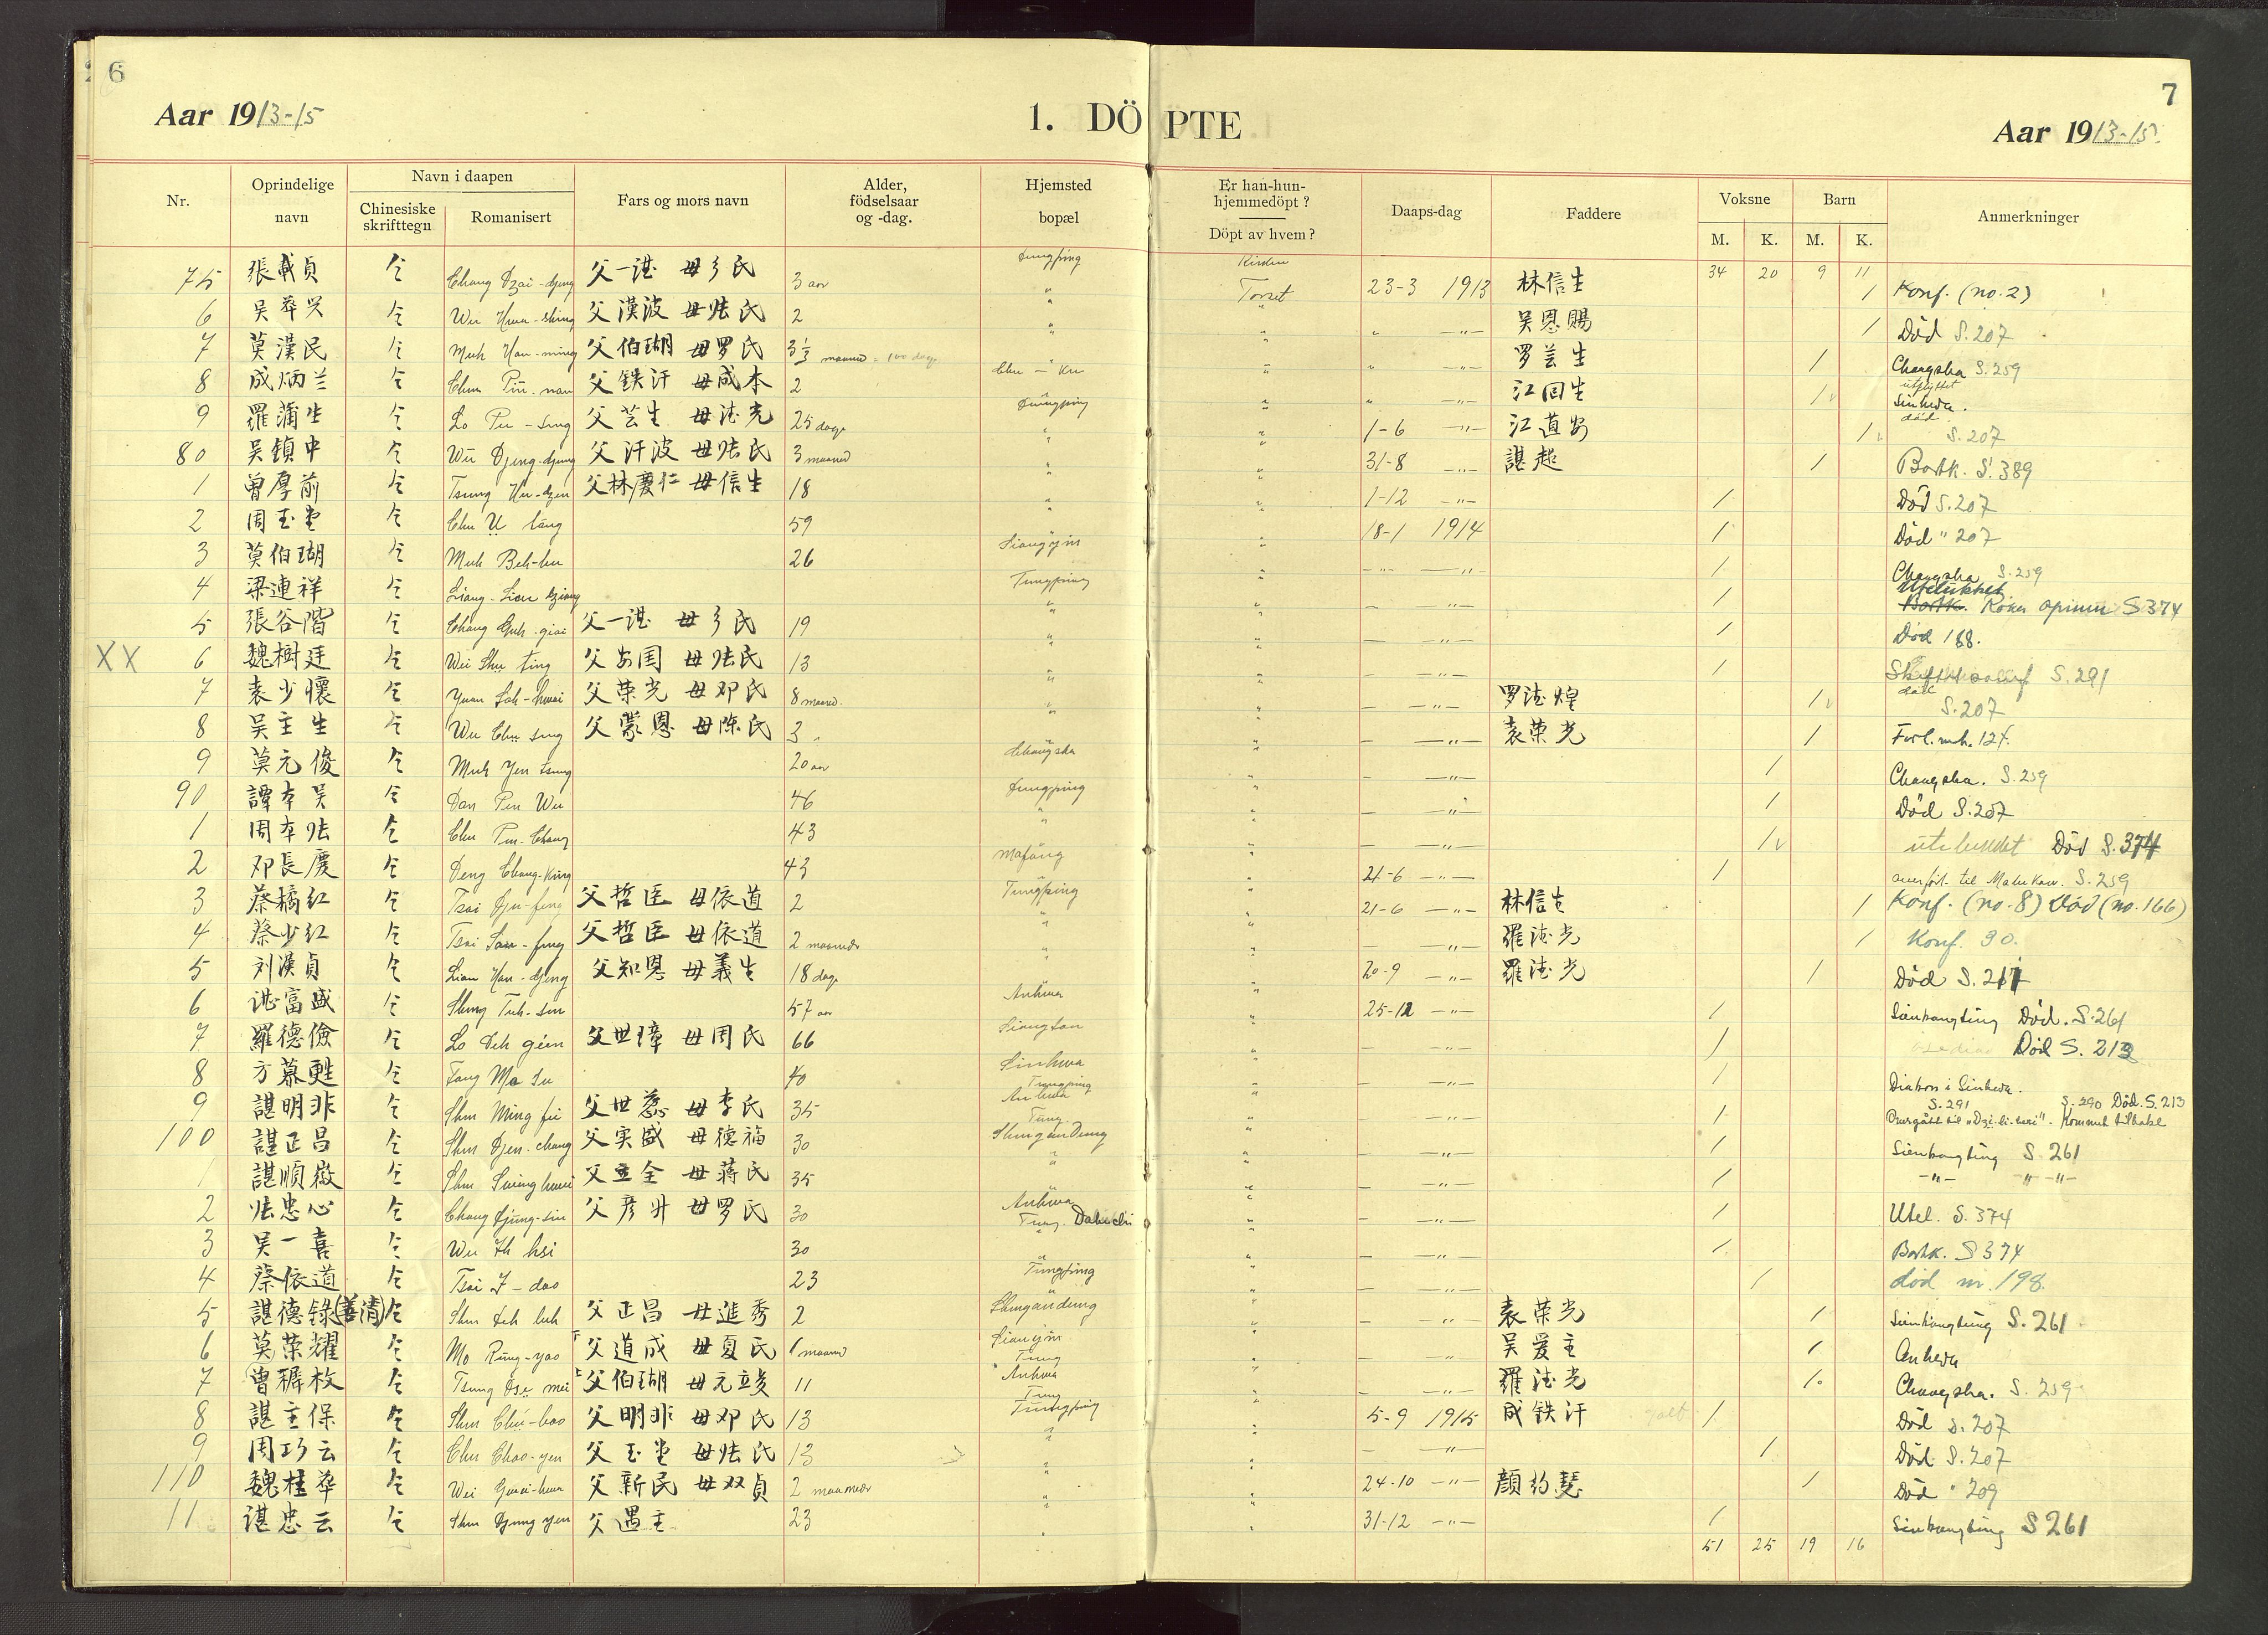 6
7
Aar 1913-15
1. DÖPTE
Aar 1913-15
Nr.
Oprindelige navn
Navn i daapen
Chinesiske skrifttegn
Romanisert
Fars og mors navn
Alder, födselsaar og -dag.
Hjemsted bopæl
Er han-hun-hjemmedöpt ?
Döpt av hvem ?
Daaps-dag
Faddere
Voksne
M.
K.
Barn
M.
K.
Anmerkninger
34 20 9 11
75 張載貞 仝 Chang Dzai-djeng 父一諶 母 氏 3 aar Tungping Kirsten Torset 23-3 1913 林信生 / Konf. (no. 2)
6 吴華兴 仝 Wu Hwa-shing 父漢波 母张氏 2 " " " —"— 吴恩賜 / Död S. 207
7 莫漢民 仝 Muh Han-ming 父伯瑚 母罗氏 3 1/3 maaned = 100 dage " " " —"— 罗芸生 / Changsha S. 259
8 成炳兰 仝 父铁汗 母成本 2 " " —"— 江回生 / utflyttet Sinhwa.
9 羅蒲生 仝 Lo Pu-seng 父芸生 母德光 25 dage Tungping " 1-6 —"— 江道安 / död S. 207
80 吴鎮中 仝 Wu Djeng-djung 父汗波 母张氏 3 maaned " " 31-8 —"— 諶超 / Bortk. S. 389
1 曾厚前 仝 父林慶仁 母信生 18 " " 1-12 —"— / Död S. 207
2 周玉堂 仝 Chu U tang 59 " " 18-1 1914 / Död " 207
3 莫伯瑚 仝 Muh Beh-hu 26 Siangyin " —"— / Changsha S. 259
4 梁連祥 仝 Liang-Lien dziang Tungping " — —"— / Utelukket Bortk. Röker opium S 374
5 張谷階 仝 Chang Guh-giai 父一諶 母 氏 19 " " — —"— / Död 188.
XX 6 魏樹廷 仝 Wei Shu ting 父安国 母张氏 13 " " — —"— / S. 291
7 袁少懷 仝 Yuan Sah-hwai 父荣光 母邓氏 8 maaned. " " — —"— 罗德煌 / död S. 207
8 吴主生 仝 Wu Chu seng 父蒙恩 母陈氏 3 " " " — —"— 袁荣光 / 127.
9 莫元俊 仝 Muh Yen tsung 20 aar Changsha " — —"— / Changsha. S. 259
90 譚本吴 仝 Dan Pen Wu 46 Tungping " — —"— / Död S. 207
1 周本张 仝 Chu Pen-Chang 43 " " — —"— / utelukket Död S. 374
2 邓長慶 仝 Deng Chang-King 43 Mafang " 21-6 —"— / overfört til S. 259
3 蔡橘红 仝 Tsai Dju-fung 父哲臣 母依道 2 Tungping " 21-6 —"— 林信生 / Konf. (no. 8) Död (no. 166)
4 蔡少红 仝 Tsai Sau-fung 父哲臣 母依道 2 maaneder " " — —"— 羅德光 / Konf. 90.
5 刘漢貞 仝 Liau Han-djeng 父知恩 母義生 18 dage " " 20-9 —"— 羅德光 / Död S. 211
6 諶富盛 仝 57 aar Anhwa " 25-12 —"— / Sienkangting Död. S. 261
7 羅德儉 仝 Lo Deh gien 父世璋 母周氏 66 Siangtan " — —"— / Död S. 213
8 方慕甦 仝 Fang Mo Su 40 Sinhwa Tungping " — —"— / Diakon i Sinhwa. S. 291
9 諶明非 仝 Shen Ming fei 父世慈 母李氏 35 Anhwa Tung. " — —"— / S. 290 Död. S. 213 Overgått til "Dzi-li-huei". Kommet tilbake
100 諶正昌 仝 Shen Djen-chang 父实盛 母德福 30 Shengandung " — —"— / Sienkangting S. 261
1 諶順嶽 仝 父立全 母蒋氏 35 " " — —"— / —"— —"—"—
2 张忠心 仝 Chang Djung-sin 父彦升 母罗氏 30 Anhwa Tung. " — —"— / Utel. S. 374
3 吴一喜 仝 Wu Ih hsi 30 " " — —"— / Bortk. S 374
4 蔡依道 仝 Tsai I-dao 23 Tungping " — —"— / död nr. 198.
5 諶德録(善清) 仝 Shen Deh luh 父正昌 母進秀 2 Shengandung " — —"— 袁荣光 / Sienkangting S. 261
6 莫荣耀 仝 Mo Rung-yao 父道成 母夏氏 6 maaned Siangyin Tung " — —"— 吴爱主 / Anhwa
7 曾穉枚 仝 Tsung Dse mei 父伯瑚 母元 11 Anhwa Tung " — —"— 羅德光 / Changsha. S. 259
8 諶主保 仝 Shen Chu-bao 父明非 母邓氏 13 Tungping " 5-9 1915 成铁汗 / Död S. 207
9 周巧云 仝 Chu Chao-yen 父玉堂 母张氏 13 " " — —"— / Död. S. 207
110 魏桂華 仝 Wei Guei-hwa 父新民 母双貞 2 maaneder " " 24-10 —"— 顔約慧 / Död " 209
11 諶忠云 仝 Shen Djung yen 父遇主 23 " " 31-12 —"— / Sienkangting S 261
51 25 19 16